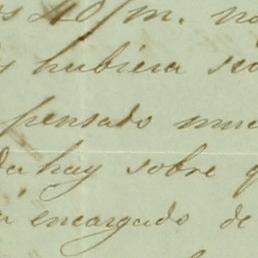 os 40/m. no
hubiera si
pensado muc
da hay sobre q
encargado de